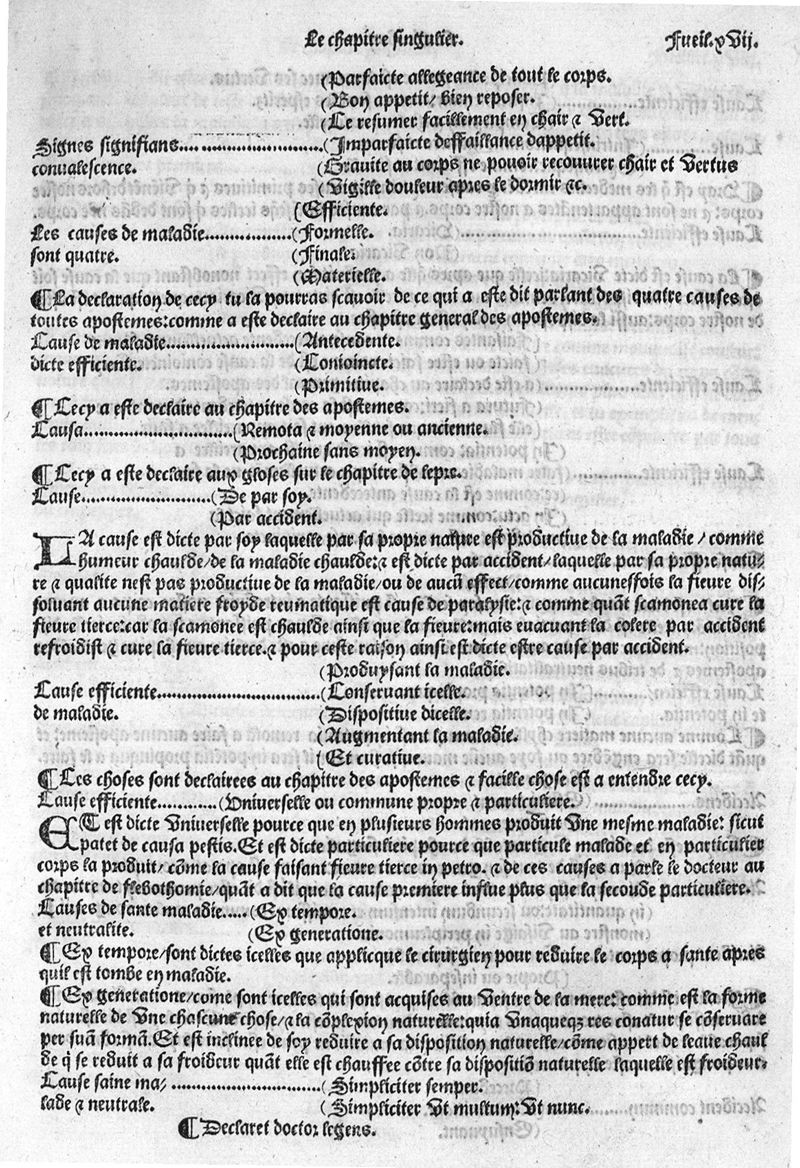 Le chapitre singulier. Fueil. xVij.
(Parfaicte allegeance de tout le corps.
(Bon appetit/ bien reposer.
(Le resumer facillement en chair & Vert.
Signes signifians........................(Imparfaicte deffaillance dappetit.
conualescence. (Grauite au corps ne pouoir recouurer chair et Vertus
(Vigille douleur apres le dormir &c.
(Efficiente.
Les causes de maladie.................(Formelle.
sont quatre. (Finale.
(Materielle.
¶ La declaration de cecy tu la pourras scauoir de ce qui a este dit parlant des quatre causes de
toutes apostemes:comme a este declaire au chapitre general des apostemes.
Cause de maladie.........................(Antecedente.
dicte efficiente. (Conioincte.
(Primitiue.
¶ Cecy a este declaire au chapitre des apostemes.
Causa..............................(Remota & moyenne ou ancienne.
(Prochaine sans moyen.
¶ Cecy a este declaire aux gloses sur le chapitre de lepre.
Cause..........................(De par soy.
(Par accident.
LA cause est dicte par soy laquelle par sa propre nature est productiue de la maladie / comme
humeur chaulde/de la maladie chaulde:& est dicte par accident/laquelle par sa propre natu/
re & qualite nest pas productiue de la maladie/ou de aucũ effect/comme aucunesfois la fieure dis/
soluant aucune matiere froyde reumatique est cause de paralysie:& comme quãt scamonea cure la
fieure tierce:car la scamonee est chaulde ainsi que la fieure:mais euacuant la colere par accident
refroidist & cure la fieure tierce.& pour ceste raison ainsi est dicte estre cause par accident.
(Produysant la maladie.
Cause efficiente................................(Conseruant icelle.
de maladie. (Dispositiue dicelle.
(Augmentant la maladie.
(Et curatiue.
¶ Ces choses sont declairees au chapitre des apostemes & facille chose est a entendre cecy.
Cause efficiente............(Vniuerselle ou commune propre & particuliere.
ET est dicte Vniuerselle pource que en plusieurs hommes produit Vne mesme maladie: sicut
patet de causa pestis.Et est dicte particuliere pource que particule malade et en particulier
corps la produit/cõme la cause faisant fieure tierce in petro. & de ces causes a parle le docteur au
chapitre de flebothomie/quãt a dit que la cause premiere influe plus que la seconde particuliere.
Causes de sante maladie.....(Ex tempore.
et neutralite. (Ex generatione.
¶ Ex tempore/sont dictes icelles que applicque le cirurgien pour reduire le corps a sante apres
quil est tombe en maladie.
¶ Ex generatione/cõme sont icelles qui sont acquises au Ventre de la mere: comme est la forme
naturelle de Vne chascune chose/& la cõplexion naturelle:quia Vnaqueqz res conatur se cõseruare
per suã formã.Et est inclinee de soy reduire a sa disposition naturelle/cõme appert de leaue chaul
de q̃ se reduit a sa froideur quãt elle est chauffee cõtre sa dispositiõ naturelle laquelle est froideur.
Cause saine ma/ .............................(Simpliciter semper.
lade & neutrale. (Simpliciter Vt multum:Vt nunc.
¶ Declaret doctor legens.